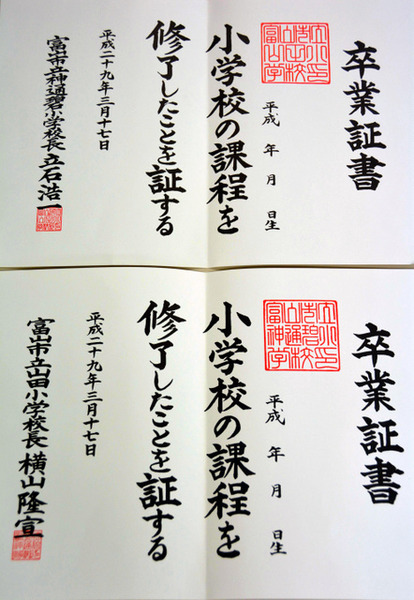 卒業証書
平成　年　月　日生
小学校の課程を
修了したことを証する
平成二十九年三月十七日
富山市立神通碧小学校長 立石浩一
卒業証書
平成　年　月　日生
小学校の課程を
修了したことを証する
平成二十九年三月十七日
富山市立山田小学校長 横山隆宣